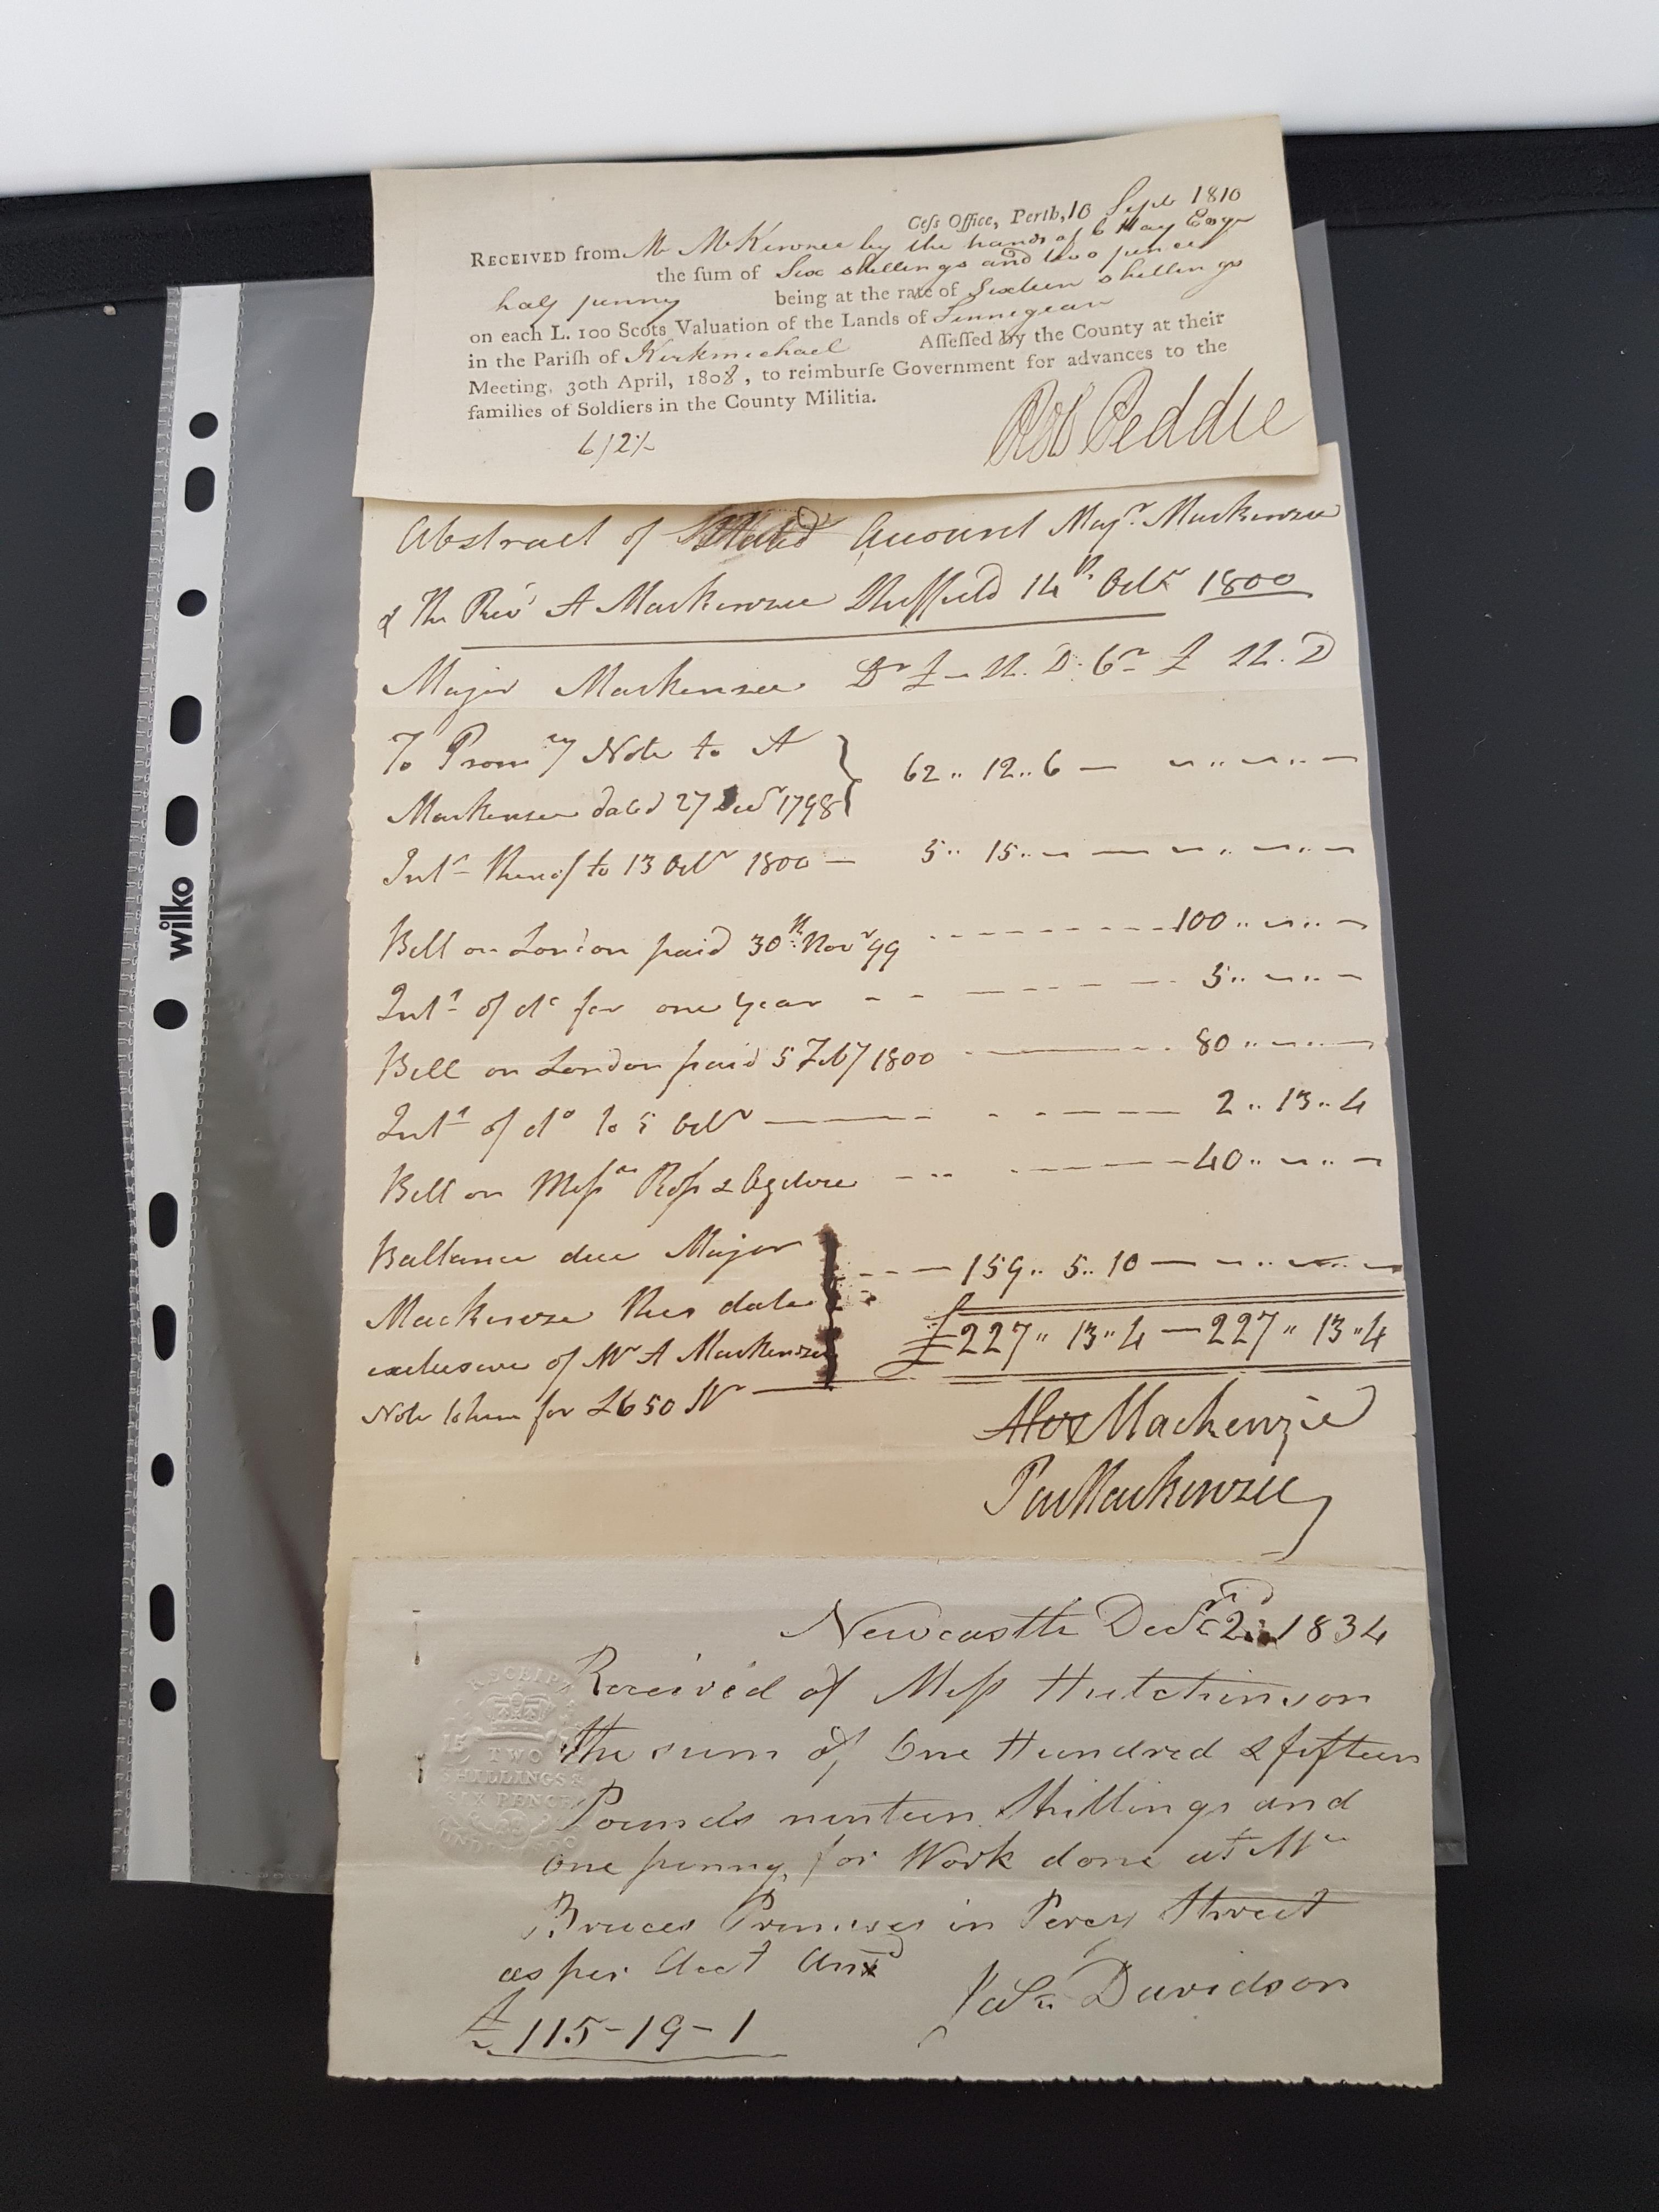 Ceſs Office, Perth, 10 Sept 1810
RECEIVED from Mr McKenzie by the hands of Hay Esqr
the ſum of Six shillings and two pence
half penny being at the rate of Sixteen shillings
on each L. 100 Scots Valuation of the Lands of Finnegean
in the Pariſh of Kirkmichael Aſſeſſed by the County at their
Meeting, 30th April, 1808, to reimburſe Government for advances to the
families of Soldiers in the County Militia.
6/2½
Rob Peddie
Abstract of Stated Account Majr. Mackenzie
& The Revd A Mackenzie Sheffield 14th Octr 1800
Major Mackenzie Dr £ - Sh. D. Cr £ Sh. D
To Promy Note to A
Mackenzie dated 27 Decr 1798 62 .. 12 .. 6
Intt thereof to 13 Octr 1800 - 5 .. 15 ..
Bill on London paid 30th Novr 99 100 ..
Intt of do for one year 5 ..
Bill on London paid 5 Feby 1800 80 ..
Intt of do to 5 Octr 2 .. 13 .. 4
Bill on Messrs Ross & Ogilvie 40 ..
Ballance due Major
Mackenzie this date 159 .. 5 .. 10
exclusive of Mr A Mackenzie £227 " 13 " 4 - 227 " 13 " 4
Note to him for £650 St
Alex Mackenzie
Pat Mackenzie
Newcastle Decr 2d 1834
Received of Mess Hutchinson
the sum of One Hundred & fifteen
Pounds ninteen Shillings and
one penny, for Work done at Mr
Bruces Premises in Percy Street
as per Acct And
£115-19-1
Davidson
RECEIPT
TWO
SHILLINGS &
SIX PENCE
wilko